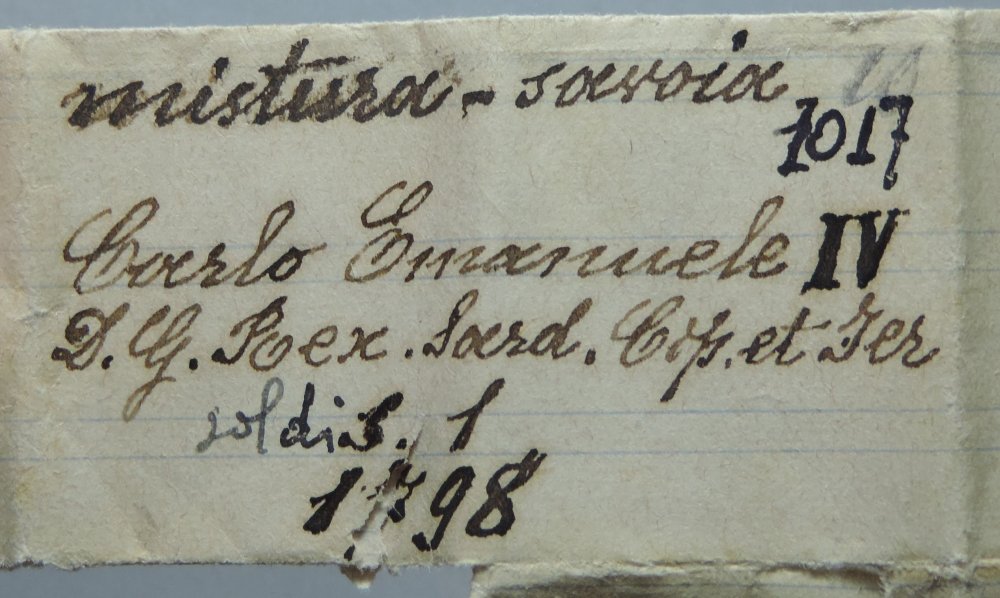 mistura - savoia
1017
Carlo Emanuele IV
D. G. Rex. Sard. Cip. et Jer
soldi s. 1
1798